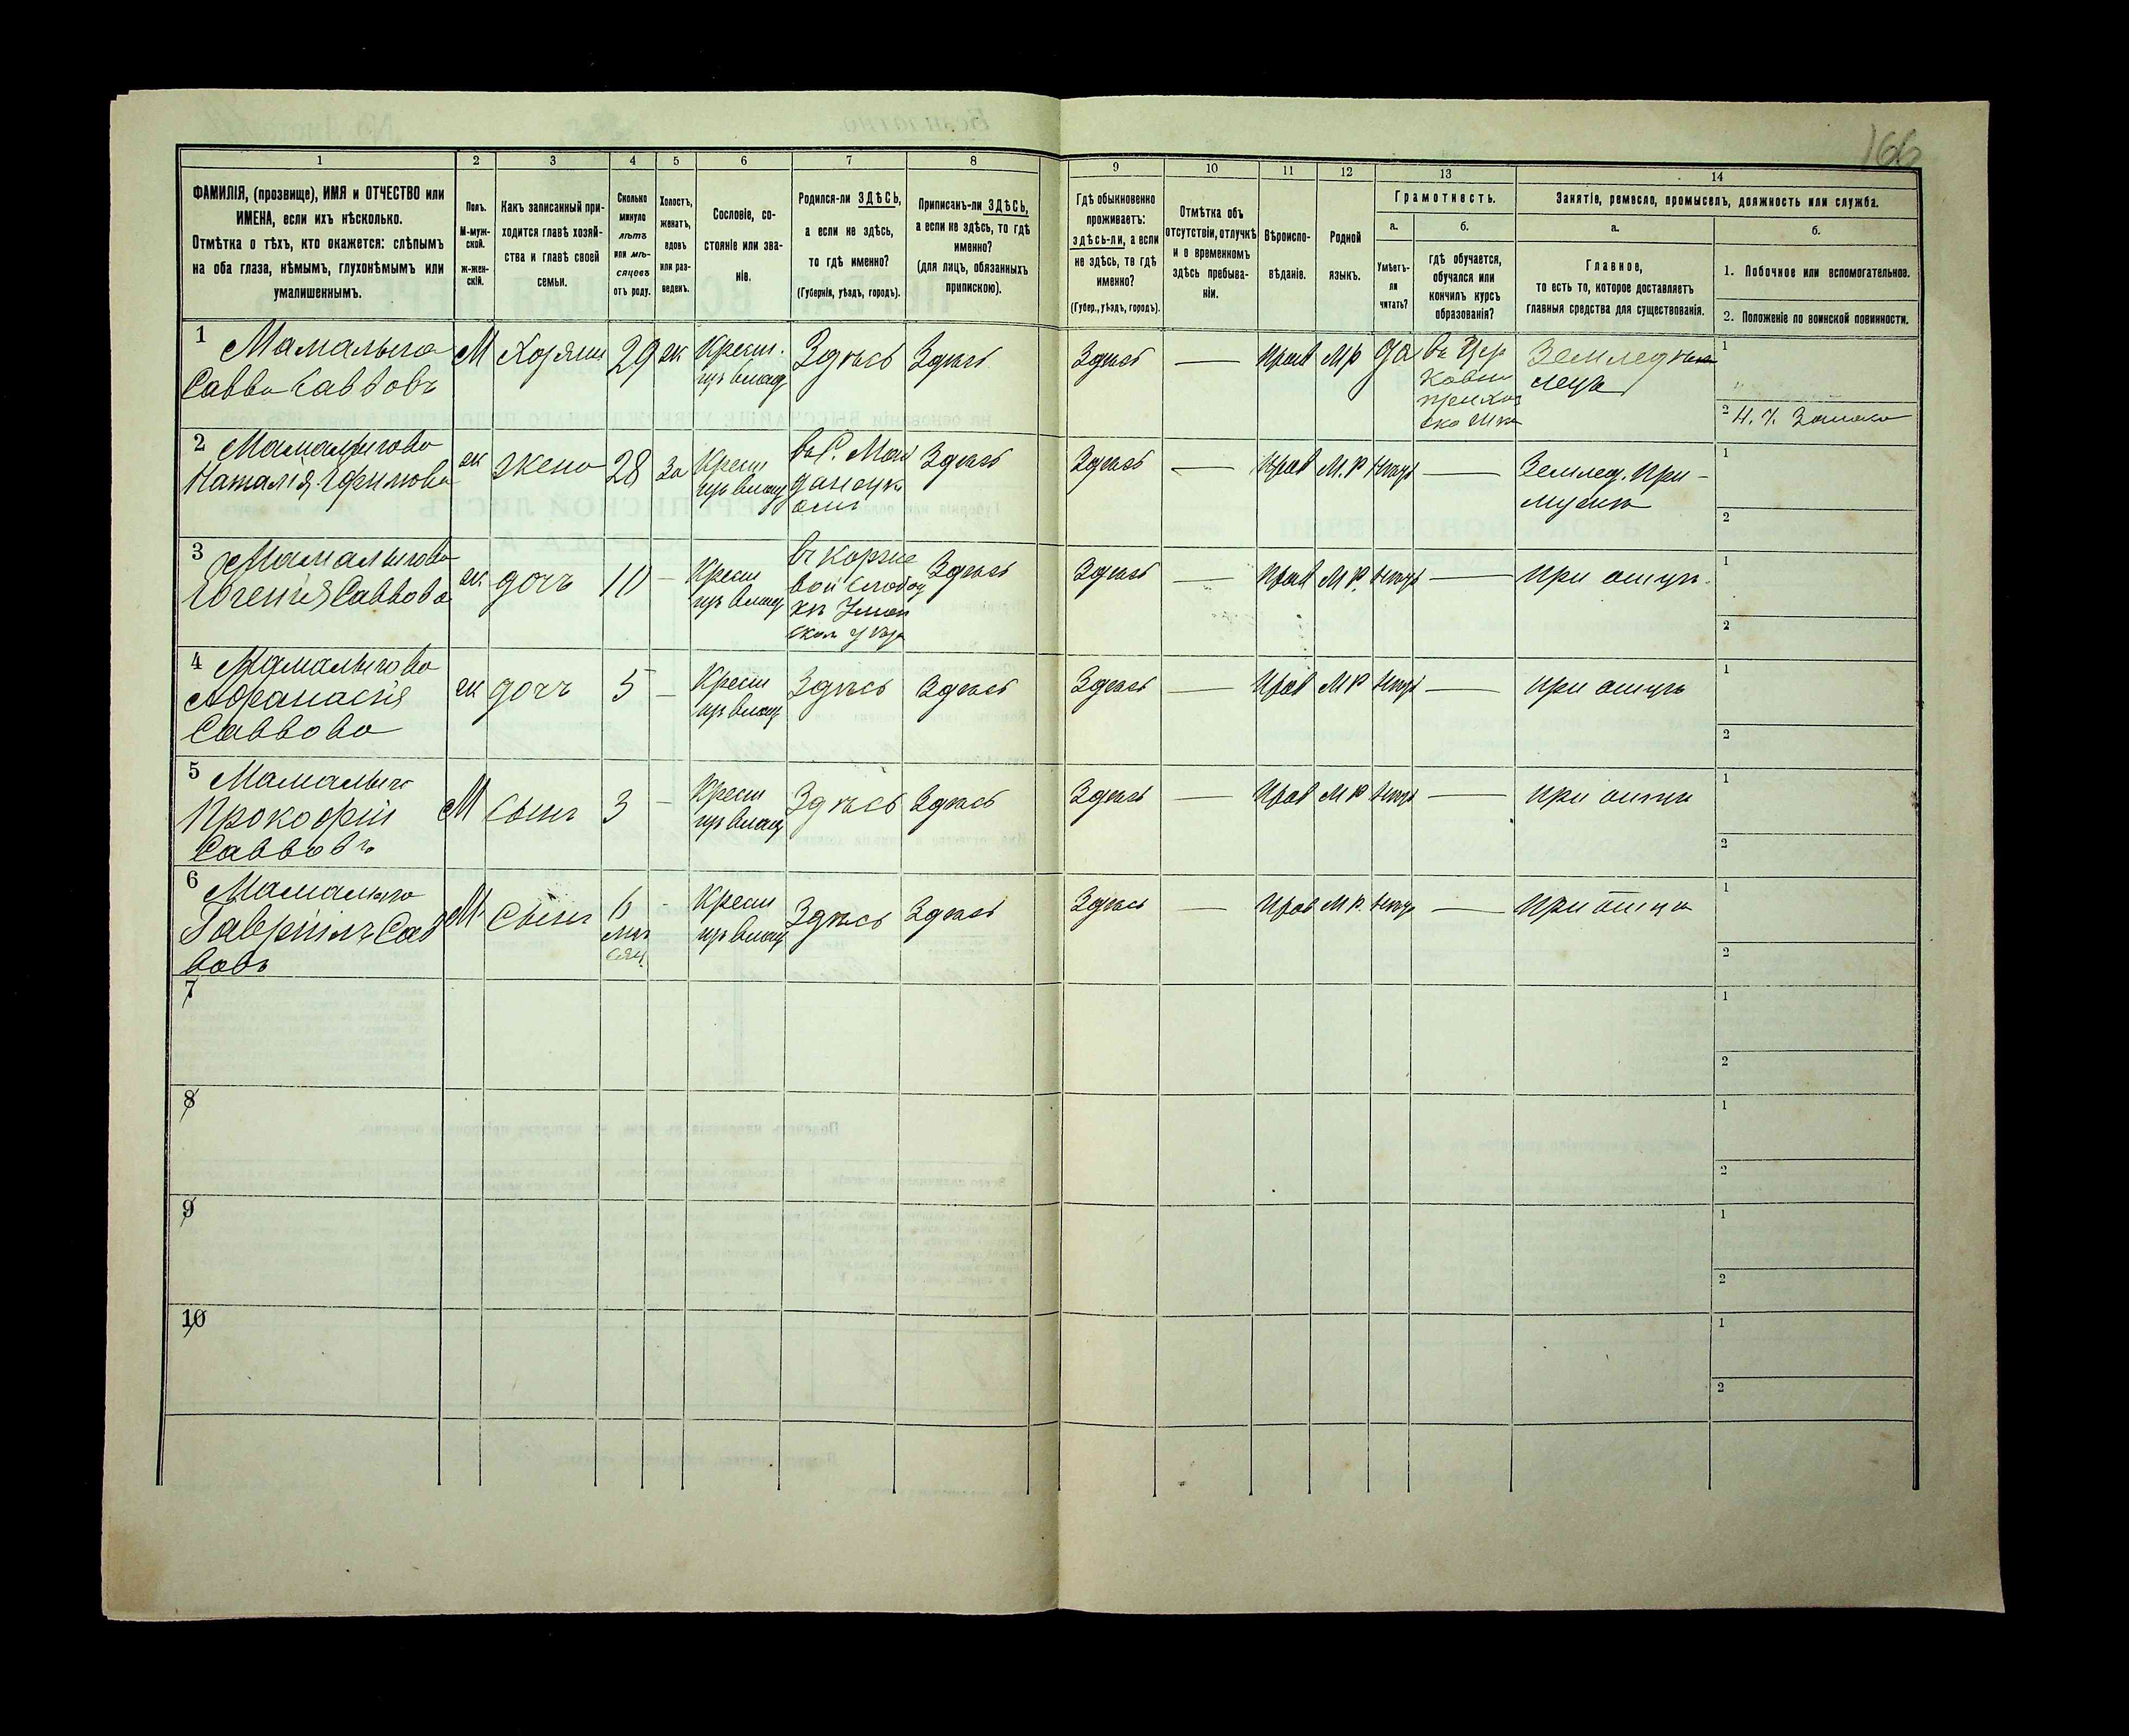 166
1 2 3 4 5 6 7 8 9 10 11 12 13 14
ФАМИЛІЯ, (прозвище), ИМЯ и ОТЧЕСТВО или
ИМЕНА, если ихъ нѣсколько.
Отмѣтка о тѣхъ, кто окажется: слѣпымъ
на оба глаза, нѣмымъ, глухонѣмымъ или
умалишеннымъ.
Полъ.
М-муж-
ской.
ж-жен-
скій.
Какъ записанный при-
ходится главѣ хозяй-
ства и главѣ своей
семьи.
Сколько
минуло
лѣтъ
или мѣ-
сяцевъ
отъ роду.
Холостъ,
женатъ,
вдовъ
или раз-
веденъ.
Сословіе, со-
стояніе или зва-
ніе.
Родился-ли ЗДѢСЬ,
а если не здѣсь,
то гдѣ именно?
(Губернія, уѣздъ, городъ).
Приписанъ-ли ЗДѢСЬ,
а если не здѣсь, то гдѣ
именно?
(для лицъ, обязанныхъ
припискою).
Гдѣ обыкновенно
проживаетъ:
здѣсь-ли, а если
не здѣсь, то гдѣ
именно?
(Губер., уѣздъ, городъ).
Отмѣтка объ
отсутствіи, отлучкѣ
и о временномъ
здѣсь пребыва-
ніи.
Вѣроиспо-
вѣданіе.
Родной
языкъ.
Грамотность.
а.
Умѣетъ-
ли
читать?
б.
гдѣ обучается,
обучался или
кончилъ курсъ
образованія?
Занятіе, ремесло, промыселъ, должность или служба.
а.
Главное,
то есть то, которое доставляетъ
главныя средства для существованія.
б.
1. Побочное или вспомогательное.
2. Положеніе по воинской повинности.
1 Мамалыга М Хозяин 29 ж Крест. Здѣсь Здѣсь Здѣсь — Прав М р да въ Цер Земледѣ 1
Савва Саввовъ из Влад ковно лецъ
приход
2
2 Мамалыгова ж жена 28 за Крест Здѣсь Здѣсь — Прав М.р нѣтъ — Землед. При 1
Наталія из Влад мужѣ
2
3 Мамалыгова ж дочь 10 — Крест Здѣсь Здѣсь — Прав М.р. нѣтъ — при отцѣ. 1
Евгенія Саввова из Влад
2
4 Мамалыгова ж дочь 5 — Крест Здѣсь Здѣсь Здѣсь — Прав М р нѣтъ — при отцѣ 1
Афанасія из Влад
Саввова 2
5 Мамалыга М Сынъ 3 — Крест Здѣсь Здѣсь Здѣсь — Прав М р нѣтъ — при отцѣ 1
Прокофій из Влад
Саввовъ 2
6 Мамалыга М Сынъ 6 - Крест Здѣсь Здѣсь Здѣсь — Прав М р. нѣтъ — при отцѣ 1
Гавріилъ Сав мѣ из Влад
вовъ сяц. 2
7 1
2
8 1
2
9 1
2
10 1
2